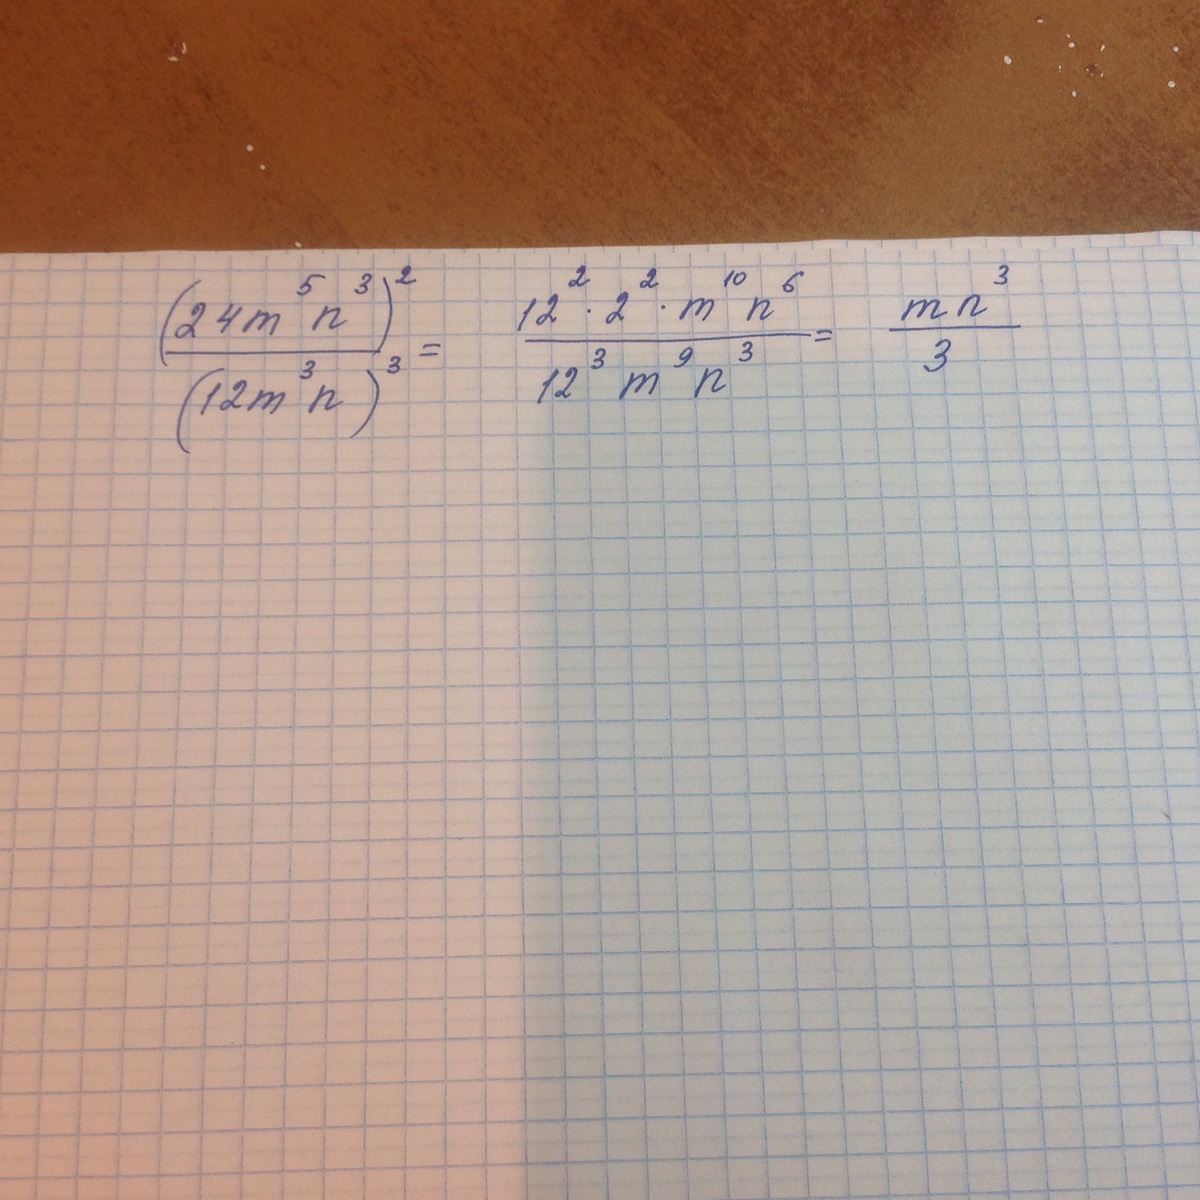 (24m⁵n³)² / (12m³n)³ = 12² · 2² · m¹⁰n⁶ / 12³m⁹n³ = mn³ / 3